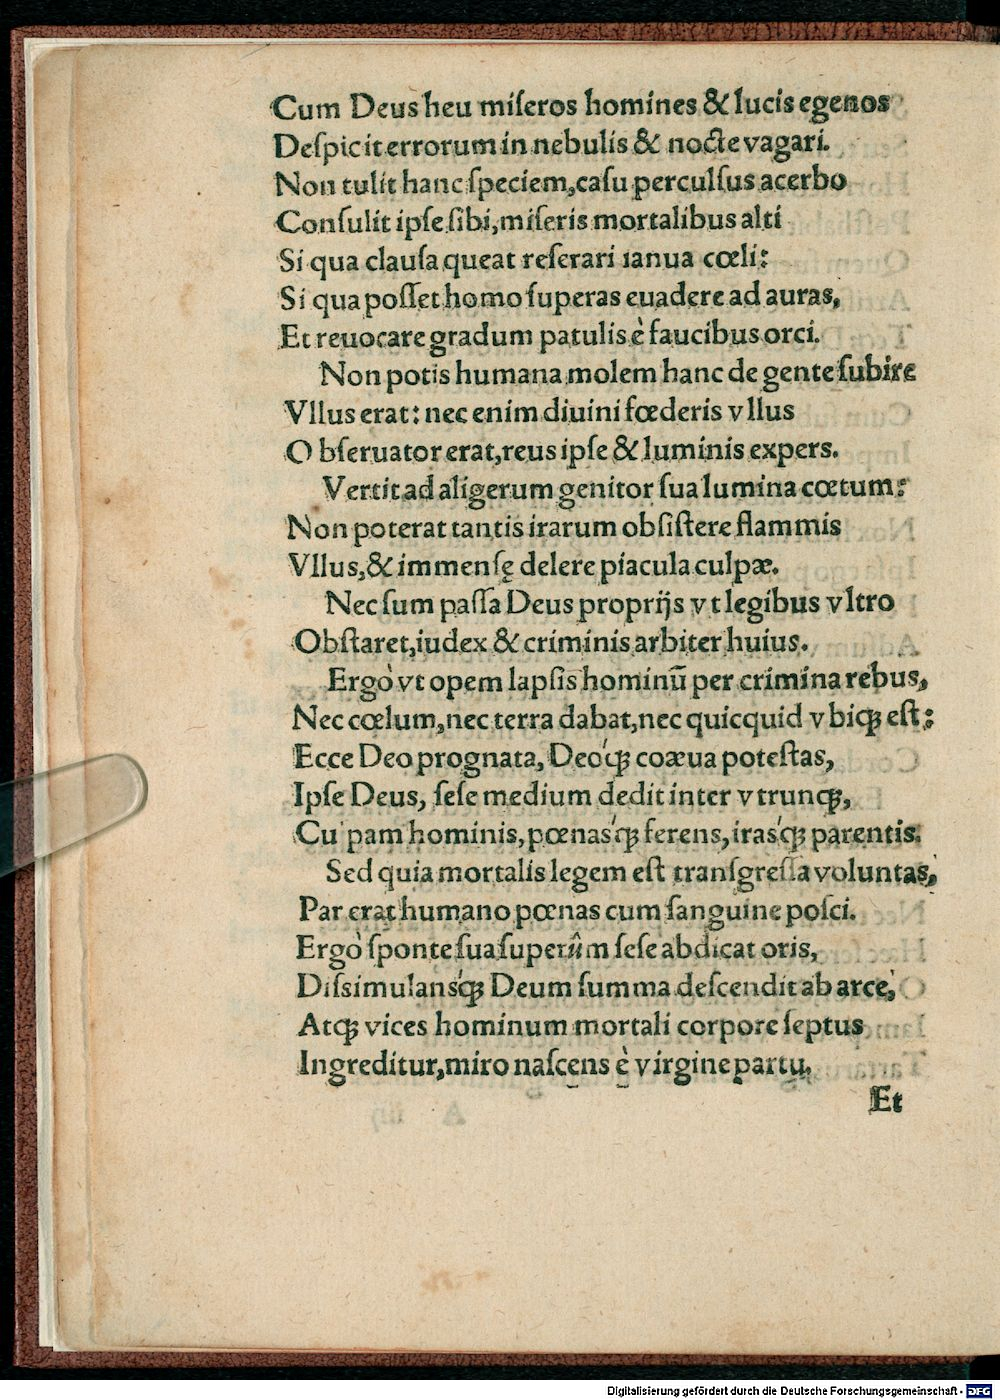 Cum Deus heu miſeros homines & lucis egenos
Deſpicit errorum in nebulis & nocte vagari.
Non tulit hanc ſpeciem, caſu perculſus acerbo
Conſulit ipſe ſibi, miſeris mortalibus alti
Si qua clauſa queat reſerari ianua cœli:
Si qua poſſet homo ſuperas euadere ad auras,
Et reuocare gradum patulis è faucibus orci.
Non potis humana molem hanc de gente ſubire
Vllus erat: nec enim diuini fœderis vllus
Obſeruator erat, reus ipſe & luminis expers.
Vertit ad aligerum genitor ſua lumina cœtum:
Non poterat tantis irarum obſiſtere flammis
Vllus, & immenſę delere piacula culpæ.
Nec ſum paſſa Deus proprijs vt legibus vltro
Obſtaret, iudex & criminis arbiter huius.
Ergò vt opem lapſis hominū per crimina rebus,
Nec cœlum, nec terra dabat, nec quicquid vbiqꝫ eſt:
Ecce Deo prognata, Deoqꝫ́ coæua poteſtas,
Ipſe Deus, ſeſe medium dedit inter vtrunqꝫ,
Cu pam hominis, pœnasqꝫ́ ferens, irasqꝫ́ parentis.
Sed quia mortalis legem eſt tranſgreſſa voluntas,
Par erat humano pœnas cum ſanguine poſci.
Ergò ſponte ſua ſuperûm ſeſe abdicat oris,
Diſsimulansqꝫ́ Deum ſumma deſcendit ab arce,
Atqꝫ vices hominum mortali corpore ſeptus
Ingreditur, miro naſcens è virgine partu,
Et
Digitalisierung gefördert durch die Deutsche Forschungsgemeinschaft - DFG